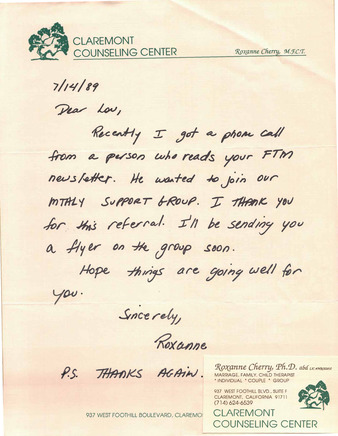 CLAREMONT
COUNSELING CENTER
Roxanne Cherry, M.F.C.T.
7/14/89
Dear Lou,
Recently I got a phone call
from a person who reads your FTM
newsletter. He wanted to join our
MTHLY SUPPORT GROUP. I THANK you
for this referral. I'll be sending you
a flyer on the group soon.
Hope things are going well for
you.
Sincerely,
Roxanne
P.S. THANKS AGAIN.
937 WEST FOOTHILL BOULEVARD, CLAREMO
Roxanne Cherry, Ph.D. abd
MARRIAGE, FAMILY, CHILD THERAPIST
* INDIVIDUAL * COUPLE * GROUP
937 WEST FOOTHILL BLVD., SUITE F
CLAREMONT, CALIFORNIA 91711
(714) 624-6539
CLAREMONT
COUNSELING CENTER